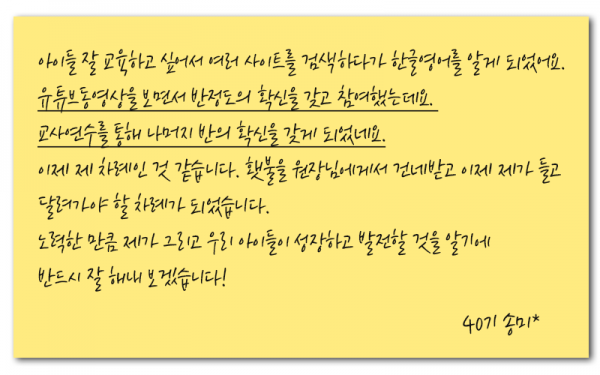 아이들 잘 교육하고 싶어서 여러 사이트를 검색하다가 한글영어를 알게 되었어요.
유튜브동영상을 보면서 반정도의 확신을 갖고 참여했는데요.
교사연수를 통해 나머지 반의 확신을 갖게 되었네요.
이제 제 차례인 것 같습니다. 횃불을 원장님에게서 건네받고 이제 제가 들고
달려가야 할 차례가 되었습니다.
노력한 만큼 제가 그리고 우리 아이들이 성장하고 발전할 것을 알기에
반드시 잘 해내 보겠습니다!
40기 송미*